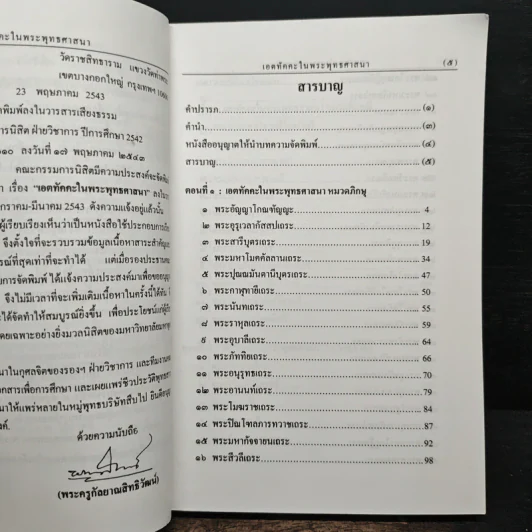 คคะในพระพุทธศาสนา
วัดราชสิทธาราม แขวงวัดท่าพระ
เขตบางกอกใหญ่ กรุงเทพฯ 10600
23 พฤษภาคม 2543
จัดพิมพ์ลงในวารสารเสียงธรรม
การนิสิต ฝ่ายวิชาการ ปีการศึกษา 2542
ลงวันที่ ๑๗ พฤษภาคม ๒๕๔๓
คณะกรรมการนิสิตมีความประสงค์จะจัดพิมพ์
เรื่อง "เอตทัคคะในพระพุทธศาสนา" ลงใน
กราคม-มีนาคม 2543 ดังความแจ้งอยู่แล้วนั้น
ผู้เรียบเรียงเห็นว่าเป็นหนังสือใช้ประกอบการเรียน
จึงตั้งใจที่จะรวบรวมข้อมูลเนื้อหาสาระสำคัญ
รณ์ที่สุดเท่าที่จะทำได้ แต่เมื่อรองประธาน
การจัดพิมพ์ ได้แจ้งความประสงค์มาเพื่อขออนุญาต
จึงไม่มีเวลาที่จะเพิ่มเติมเนื้อหาในครั้งนี้ได้ทัน
ได้จัดทำให้สมบูรณ์ยิ่งขึ้น เพื่อประโยชน์แก่ผู้
ดยเฉพาะอย่างยิ่งมวลนิสิตของมหาวิทยาลัย
นาในกุศลจิตของรองฯ ฝ่ายวิชาการ และทีมงาน
อกสารเพื่อการศึกษา และเผยแพร่ชีวประวัติพุทธ
นาให้แพร่หลายในหมู่พุทธบริษัทสืบไป
งค์.
ด้วยความนับถือ
(พระครูกัลยาณสิทธิวัฒน์)
เอตทัคคะในพระพุทธศาสนา (๕)
สารบาญ
คำปรารภ (๑)
คำนำ (๓)
หนังสืออนุญาตให้นำบทความจัดพิมพ์ (๔)
สารบาญ (๕)
ตอนที่ ๑ : เอตทัคคะในพระพุทธศาสนา หมวดภิกษุ
๑ พระอัญญาโกณฑัญญะ 4
๒ พระอุรุเวลากัสสปเถระ 12
๓ พระสารีบุตรเถระ 19
๔ พระมหาโมคคัลลานเถระ 34
๕ พระปุณณมันตานีบุตรเถระ 47
๖ พระกาฬุทายีเถระ 50
๗ พระนันทเถระ 55
๘ พระราหุลเถระ 59
๙ พระอุบาลีเถระ 64
๑๐ พระภัททิยเถระ 66
๑๑ พระอนุรุทธเถระ 70
๑๒ พระอานนท์เถระ 79
๑๓ พระโมฆราชเถระ 84
๑๔ พระปิณโฑลภารทวาชเถระ 87
๑๕ พระมหากัจจายนเถระ 92
๑๖ พระสีวลีเถระ 98